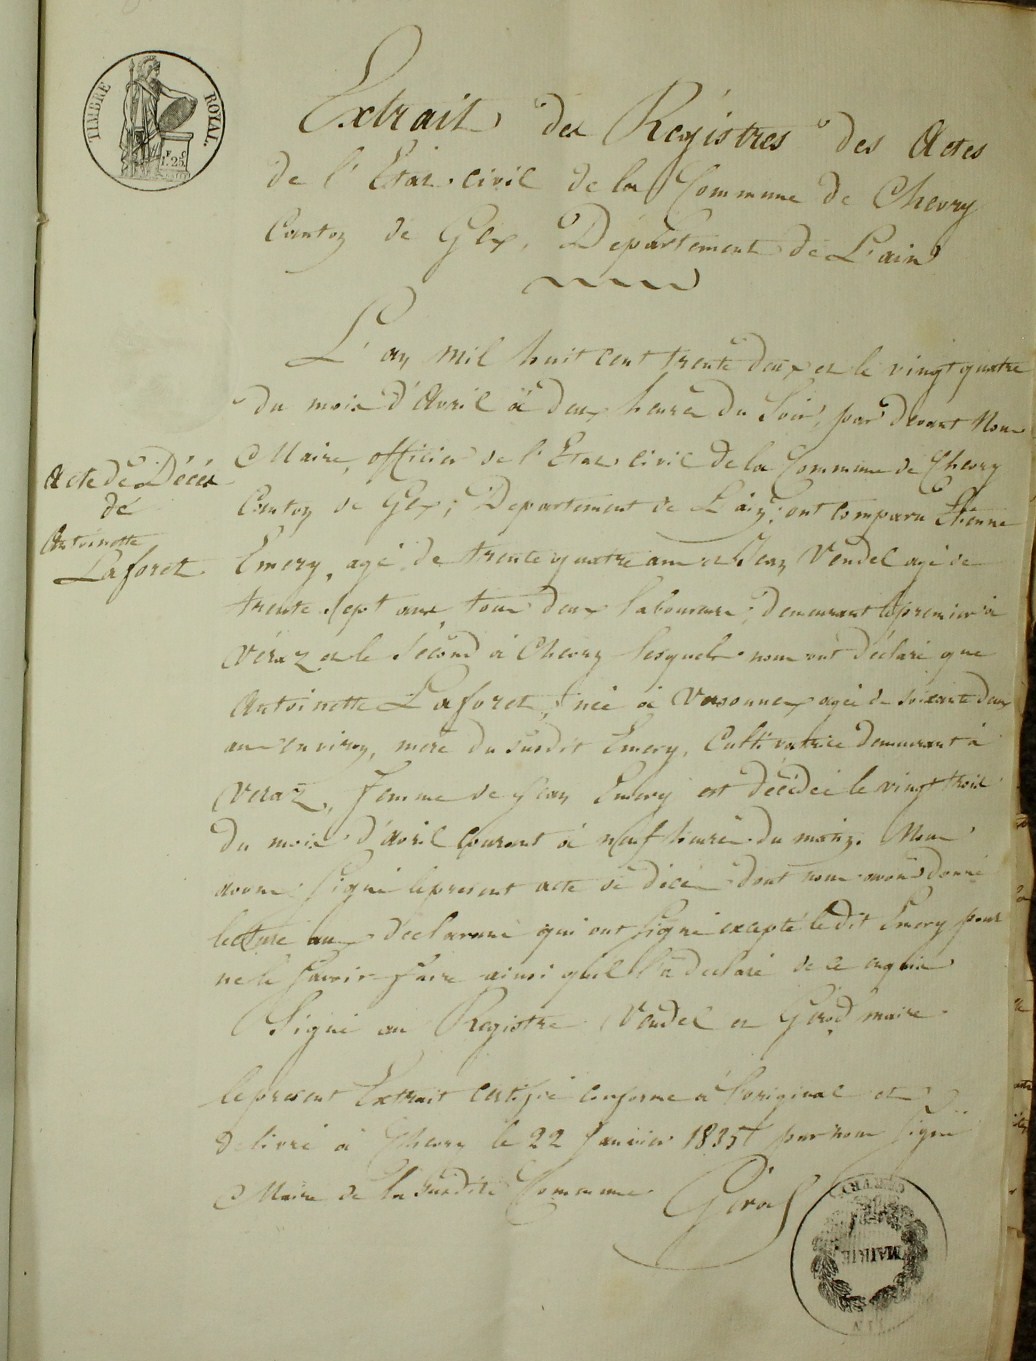 TIMBRE ROYAL.
25
Extrait des Registres des Actes
de l'Etat civil de la Commune de Chevry
Canton de Gex, Département de L'ain
L'an mil huit cent trente deux et le vingt quatre
du mois d'Avril à deux heures du Soir, par devant Nous
Maire, officier de l'Etat civil de la Commune de Chevry
Acte de Décès
de
Antoinette
Laforet
Canton de Gex; Departement de L'ain; ont comparu Etienne
Emery, agé de trente quatre ans et Jean Vendel agé de
trente Sept ans tous deux laboureurs; demeurant le premier à
Véraz et le Second à Chevry lesquels nous ont déclaré que
Antoinette Laforet, née à Versonnex agée de soixante deux
ans environ, mère du susdit Emery, Cultivatrice demeurant à
Veraz, femme de Jean Emery est décédée le vingt trois
du mois d'avril courant à neuf heures du matin. Nous
avons signé le present acte de décès dont nous avons donné
lecture aux declarans qui ont signé excepté le dit Emery pour
ne le Savoir faire ainsi qu'il l'a declaré de ce requis
Signé au Registre Vendel et Girod maire.
le present Extrait certifié conforme à l'original et
delivré à Chevry le 22 Janvier 1835 par nous signé
Maire de la susdite Commune
Girod
MAIRIE